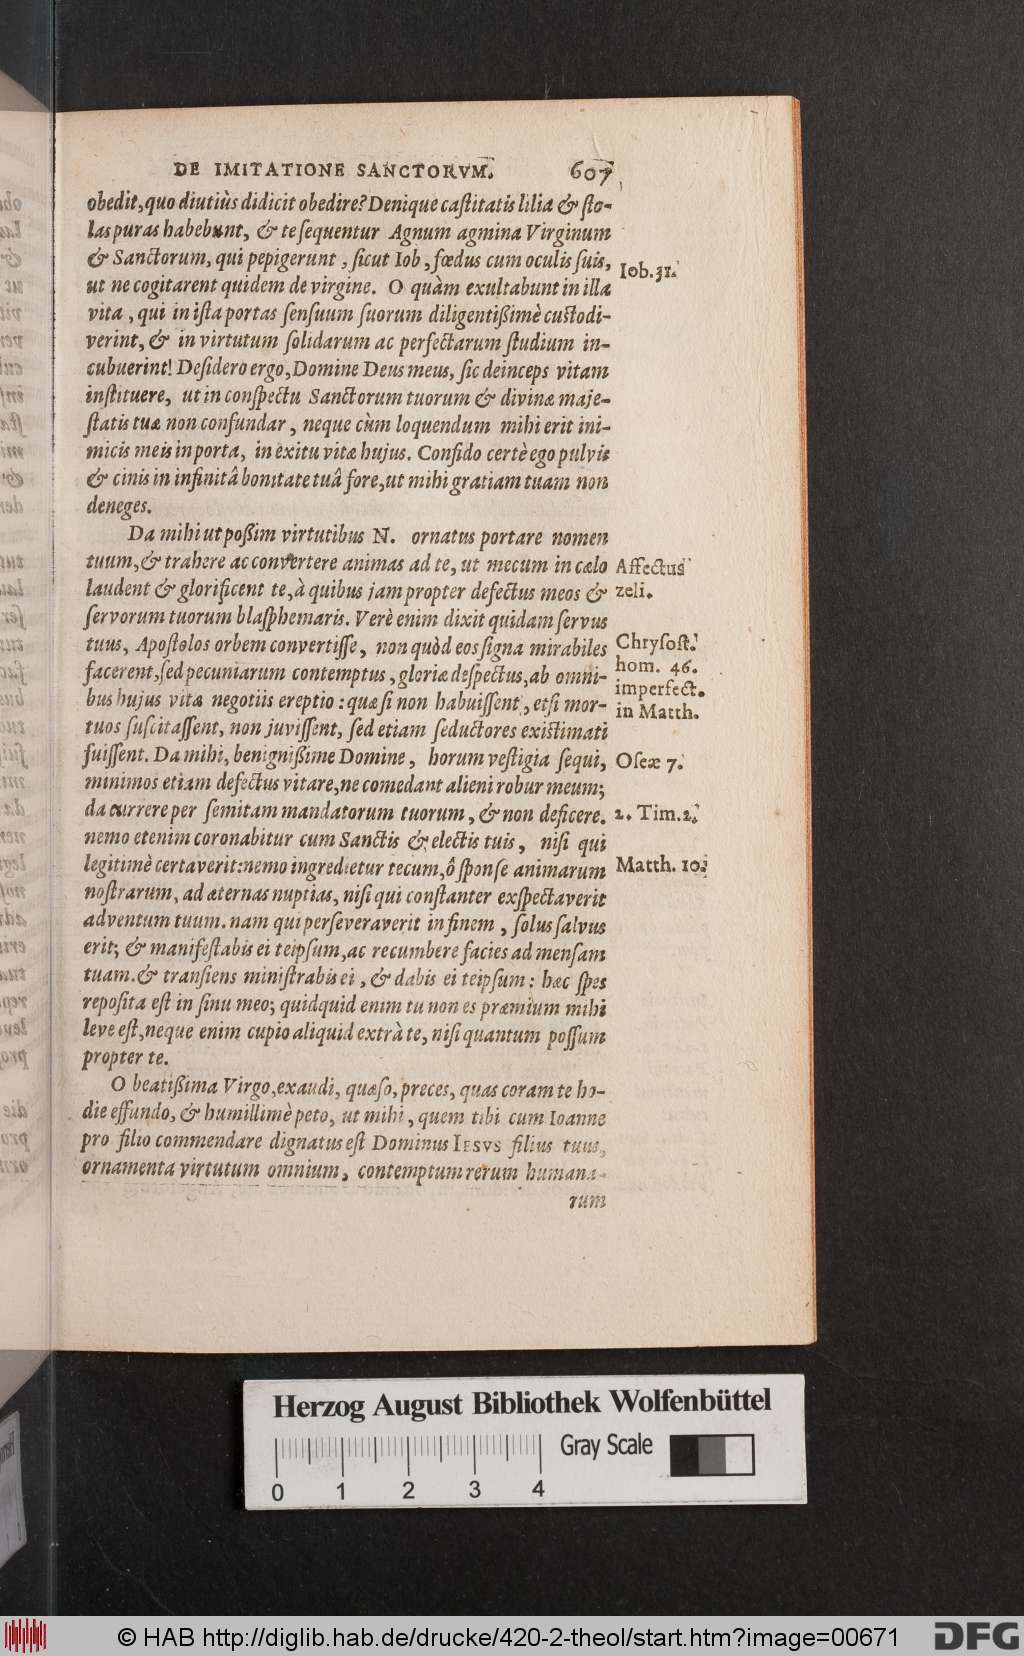 DE IMITATIONE SANCTORVM. 607
obedit, quo diutiùs didicit obedire? Denique castitatis lilia & sto-
las puras habebunt, & te sequentur Agnum agmina Virginum
& Sanctorum, qui pepigerunt, sicut Iob, fœdus cum oculis suis,
Iob. 31.
ut ne cogitarent quidem de virgine. O quàm exultabunt in illa
vita, qui in ista portas sensuum suorum diligentißimè custodi-
verint, & in virtutum solidarum ac perfectarum studium in-
cubuerint! Desidero ergo, Domine Deus meus, sic deinceps vitam
instituere, ut in conspectu Sanctorum tuorum & divinæ maje-
statis tuæ non confundar, neque cùm loquendum mihi erit ini-
micis meis in porta, in exitu vitæ hujus. Confido certè ego pulvis
& cinis in infinitâ bonitate tuâ fore, ut mihi gratiam tuam non
deneges.
Da mihi ut poßim virtutibus N. ornatus portare nomen
tuum, & trahere ac convertere animas ad te, ut mecum in cælo
Affectus
laudent & glorificent te, à quibus jam propter defectus meos &
zeli.
servorum tuorum blasphemaris. Verè enim dixit quidam servus
tuus, Apostolos orbem convertisse, non quòd eos signa mirabiles
Chrysost.
facerent, sed pecuniarum contemptus, gloriæ despectus, ab omni-
hom. 46.
imperfect.
bus hujus vitæ negotiis ereptio: quæ si non habuissent, etsi mor-
in Matth.
tuos suscitassent, non juvissent, sed etiam seductores existimati
fuissent. Da mihi, benignißime Domine, horum vestigia sequi,
Oseæ 7.
minimos etiam defectus vitare, ne comedant alieni robur meum;
da currere per semitam mandatorum tuorum, & non deficere.
2. Tim. 2.
nemo etenim coronabitur cum Sanctis & electis tuis, nisi qui
legitimè certaverit: nemo ingredietur tecum, ô sponse animarum
Matth. 10.
nostrarum, ad æternas nuptias, nisi qui constanter exspectaverit
adventum tuum. nam qui perseveraverit in finem, solus salvus
erit; & manifestabis ei teipsum, ac recumbere facies ad mensam
tuam. & transiens ministrabis ei, & dabis ei teipsum: hæc spes
reposita est in sinu meo; quidquid enim tu non es præmium mihi
leve est, neque enim cupio aliquid extrà te, nisi quantum possum
propter te.
O beatißima Virgo, exaudi, quæso, preces, quas coram te ho-
die effundo, & humillimè peto, ut mihi, quem tibi cum Ioanne
pro filio commendare dignatus est Dominus IESVS filius tuus,
ornamenta virtutum omnium, contemptum rerum humana-
rum
Herzog August Bibliothek Wolfenbüttel
Gray Scale
0 1 2 3 4
© HAB http://diglib.hab.de/drucke/420-2-theol/start.htm?image=00671
DFG